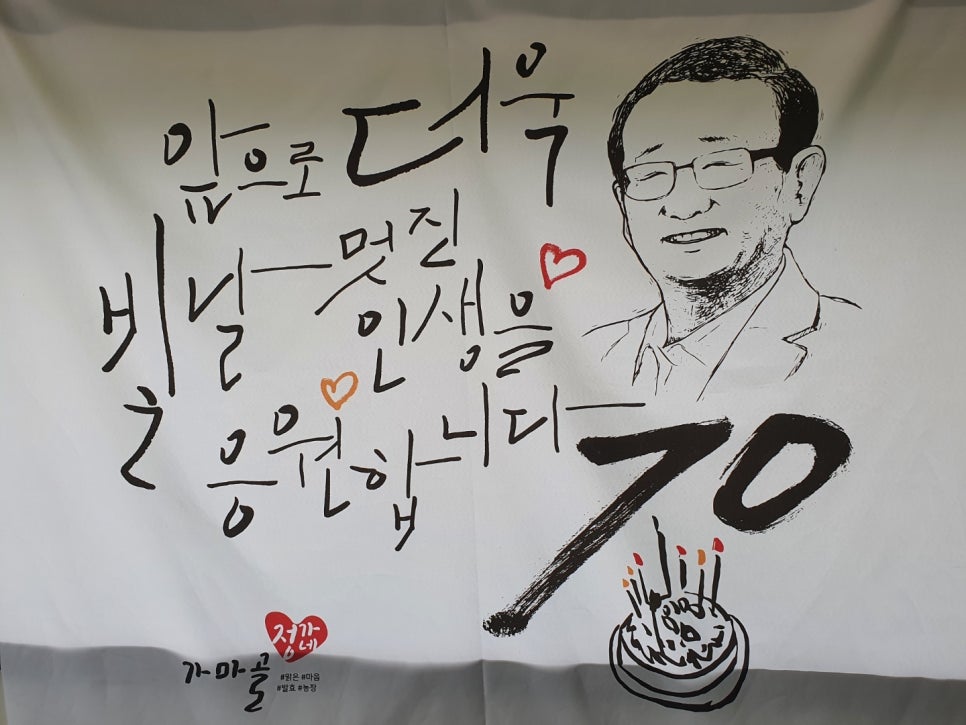 앞으로 더욱
빛날 멋진
인생을
응원합니다
70
정가네
가마골
#맑은 #마음
#발효 #농장